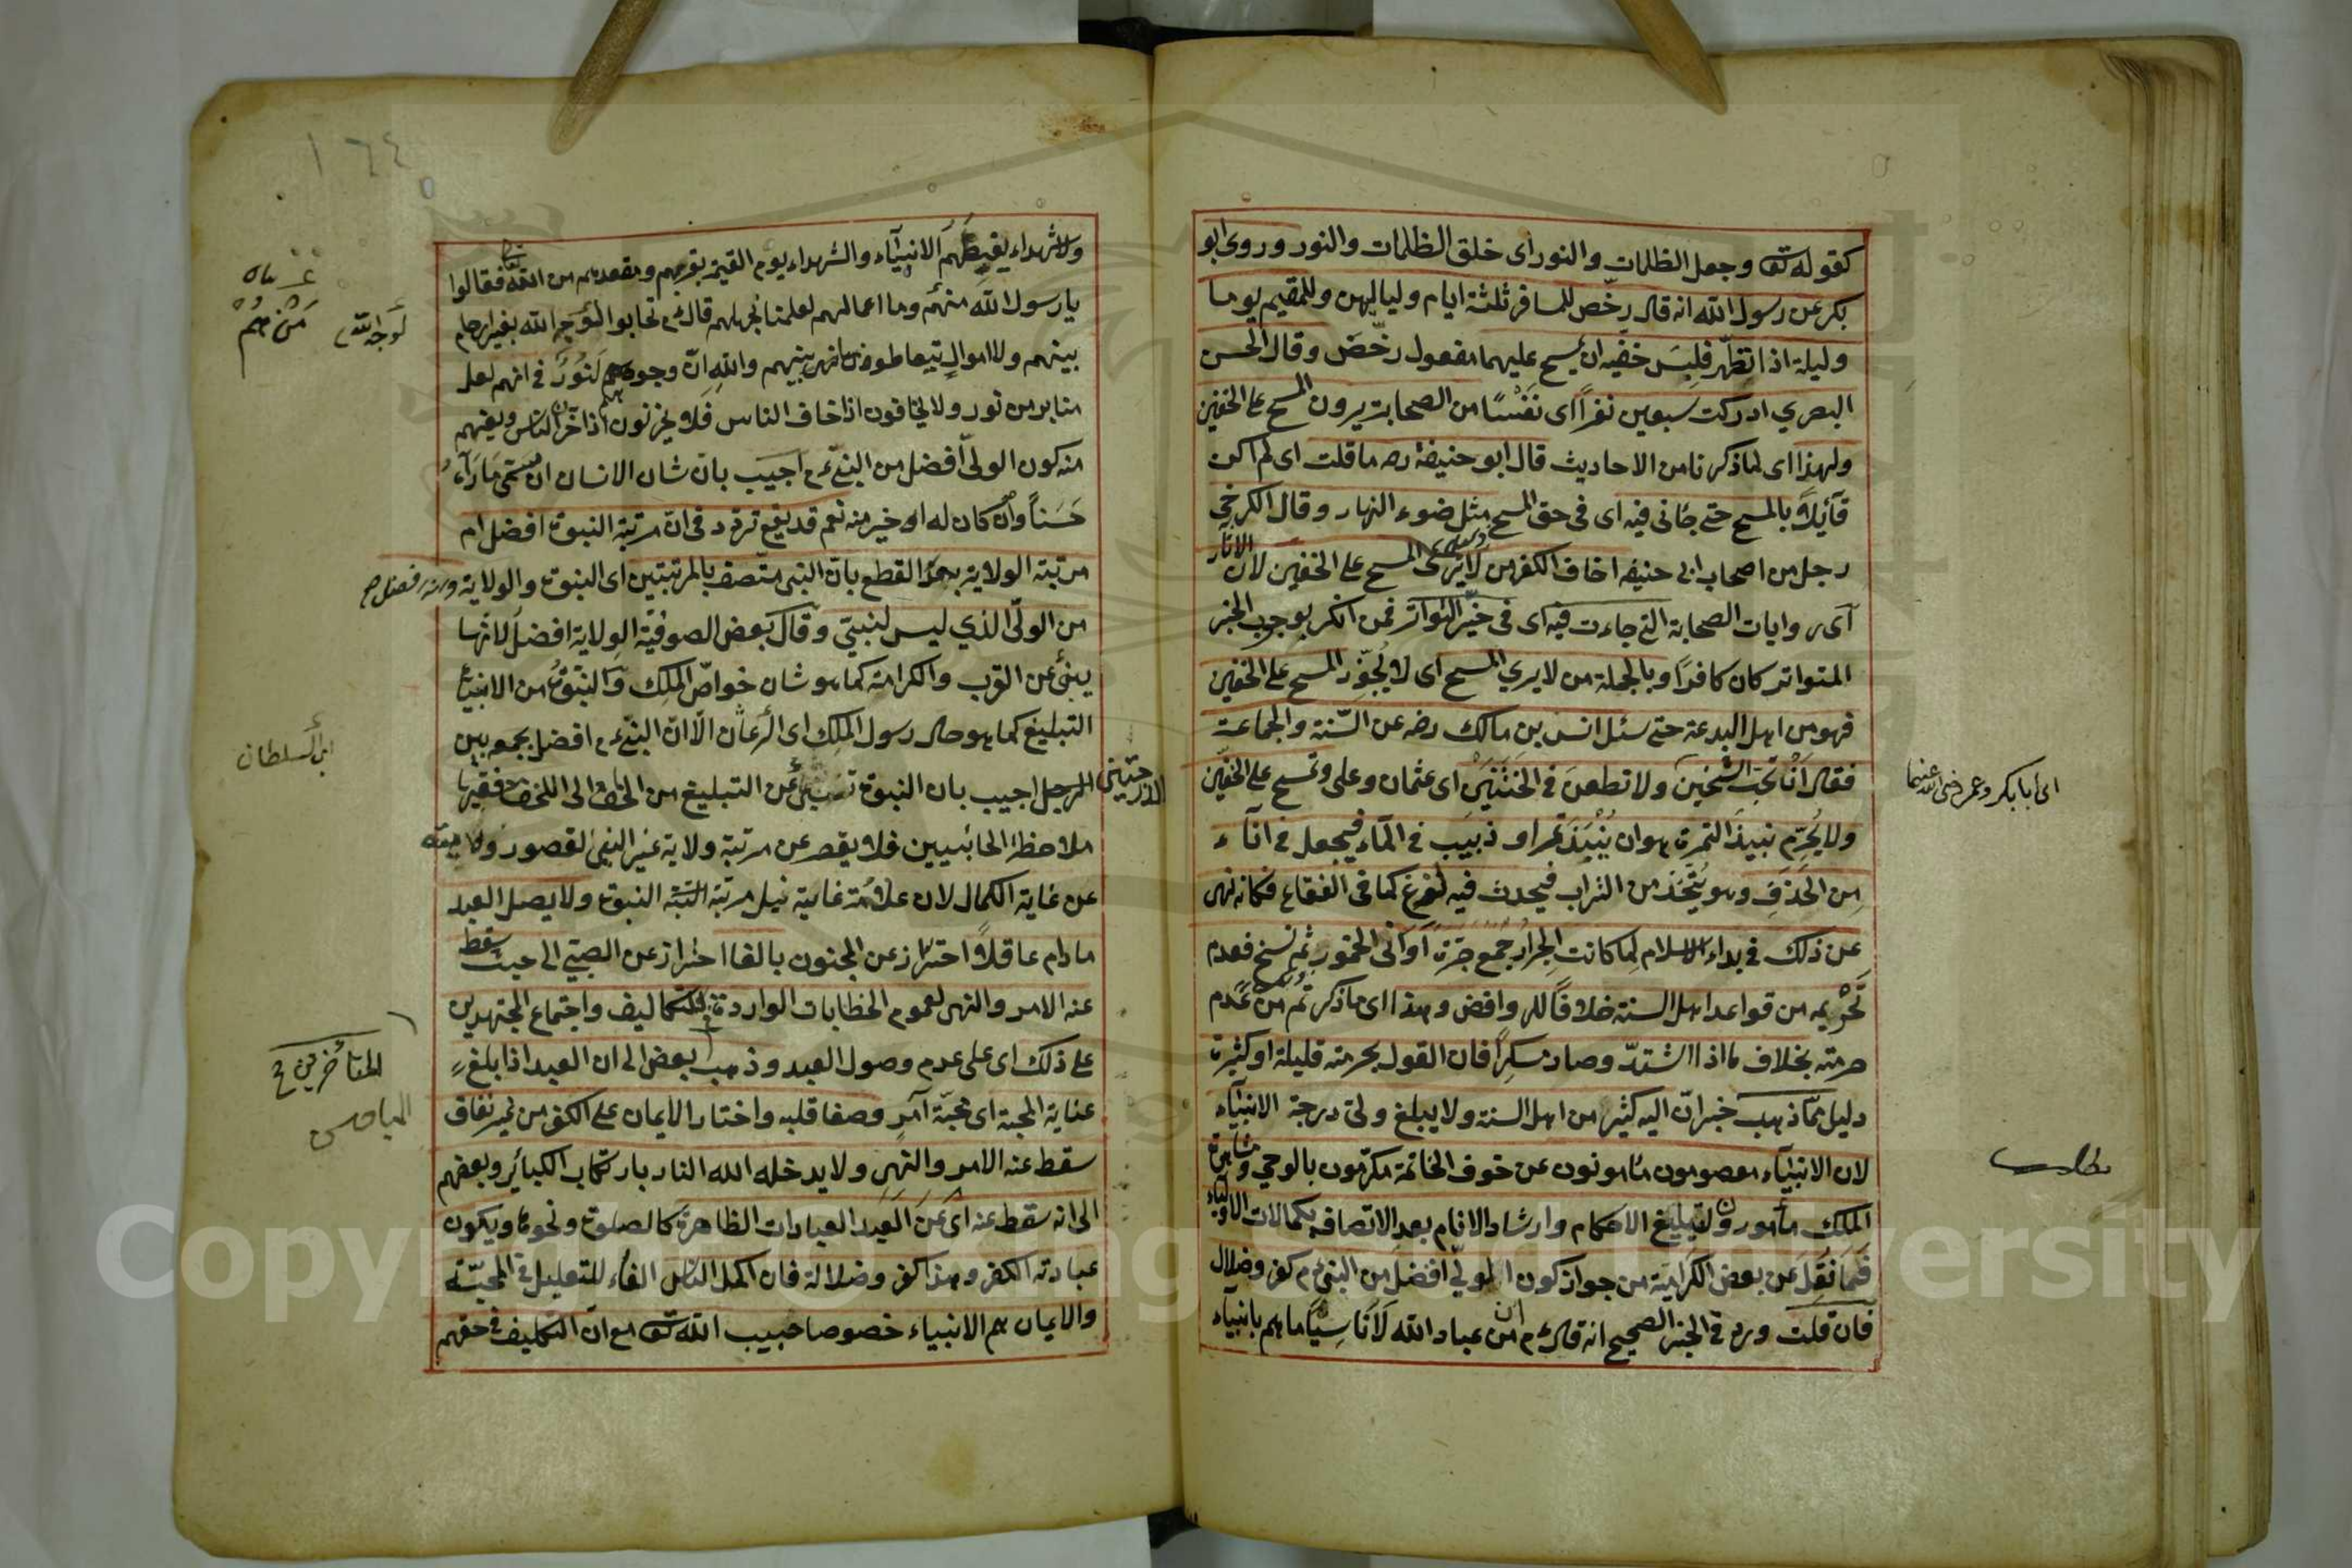 كقوله تع وجعل الظلمات والنور اى خلق الظلمات والنور وروى ابو
بكر عن رسول الله انه قال رخّص للمسافر ثلثة ايام ولياليهن وللمقيم يوما
وليلة اذا تطهّر فلبس خفيه ان يمسح عليهما مفعول رخّص وقال الحسن
البصري ادركت سبعين نفراً اى نَفْسًا من الصحابة يرون المسح على الخفين
ولهذا اى لما ذكرنا من الاحاديث قال ابو حنيفة ره ما قلت اى لم اكن
قائلاً بالمسح حتى جانى فيه اى فى حق المسح مثل ضوء النهار وقال الكرخي
رجل من اصحاب ابى حنيفه اخاف الكفر من لا يرى المسح على الخفين لان الاثار
اى روايات الصحابة التى جاءت فيه اى فى حيّز التواتر فمن انكر بوجوب الخبر
المتواتر كان كافراً وبالجملة من لا يرى المسح اى لا يُجوّز المسح على الخفين
فهو من اهل البدعة حتى سئل انس بن مالك رضه عن السّنة والجماعت
فقال اَنْ تحبّ الشيخين ولا تطعن فى الخَتَنَيْن اى عثمان وعلى وتمسح على الخفين
اى ابا بكر وعمر رضى الله عنهما
ولا يُحرّم نبيذ التمرة هو ان يُنْبَذ تمر او زبيب فى المآء فيجعل فى انآء
من الخذف وهو يُتّخذ من التراب فيحدث فيه لذع كما فى الفقاع فكانه نهى
عن ذلك فى بداء الاسلام لما كانت الجرار جمع جرّة اَوَانى الخمور ثم نسخ فعدم
تَحْريمه من قواعد اهل السنة خلافًا للروافض وهذا اى ما ذكر ثم من عَدم
حرمته بخلاف ما اذا اشتدّ وصار مسكراً فان القول بحرمته قليلة او كثيرة
دليل ممّا ذهب خبر انّ اليه كثير من اهل السنة ولا يبلغ ولىّ درجة الانبيآء
لان الانبيآء معصومون مأمونون عن خوف الخاتمة مكرّمون بالوحي ومشاهدة
مطلب
الملك مأمورون لتبليغ الاحكام وارشاد الانام بعد الاتصاف بكمالات الاوليآء
فَما نُقِل عن بعض الكرامية من جواز كون الولىّ افضل من النبىّ م كفر وضلال
فان قلت ورد فى الخبر الصحيح انه قال ءم ان من عباد الله لاناسيًّا ما هم بانبياء
١٦٤
ولا شهداء يغبطهم الانبيآء والشهداء يوم القيمة بقربهم ومقعدهم من الله تعالى فقالوا
يا رسول الله منهم وما اعمالهم لعلمنا نحبهم قال ءم تحابوا لوجه الله بغير ارحام
لوجه الله
مَنْ هُمْ
بينهم ولا اموال يتعاطونها بينهم والله انّ وجوههم لَنُورٌ فى انهم لعلى
منابر من نور ولا يخافون اذا خاف الناس فلا يحزنون اذا حزن الناس ويفهم
منه كون الولىّ افضل من النبىّ ءم اجيب بان شان الانسان ان يتمنى ما رآه
حَسَناً وان كان له اى خير منه نعم قد يقع تردد فى انّ مرتبة النبوة افضل ام
مرتبة الولاية بعد القطع بانّ النبى متّصف بالمرتبتين اى النبوة والولاية وانه افضل صح
من الولىّ الذي ليس لنبيّ وقال بعض الصوفيّة الولاية افضل لانّها
ينبئ عن القرب والكرامة كما هو شان خواصّ الملك والنبوّة من الانبياء
التبليغ كما هو حال رسول الملك اى الرعان الّا انّ النبىّ ءم افضل بجمعه بين
ابن السلطان
الدرجتين
اجيب بان النبوة عن التبليغ من الحق الى الخلق ففيها
ملاحظة الجانبيين فلا يقصر عن مرتبة ولاية غير النبى لقصور ولايته
عن غاية الكمال لان علامة غاية نيل مرتبة النبوة ولا يصل العبد
مادام عاقلاً احتراز عن المجنون بالغا احتراز عن الصبىّ الى حيث سقط
عنه الامر والنهى لعموم الخطابات الواردة فى التكاليف واجتماع المجتهدين
على ذلك اى على عدم وصول العبد وذهب بعض الى ان العبد اذا بلغ
المتأخرين
المباحيين
غناية المحبة اى محبّة آمر وصفا قلبه واختار الايمان على الكفر من غير نفاق
سقط عنه الامر والنهى ولا يدخله الله النار بارتكاب الكبائر وبعضهم
الى انه سقط عنه اى عن العبد العبادات الظاهرة كالصلوة ونحوها ويكون
عبادته الفكر وهذا كفر وضلالة فان اكمل الناس الفاء للتعليل فى المحبّة
والايمان هم الانبياء خصوصا حبيب الله تع مع انّ التكليف فى حقهم
Copyright © King Saud University